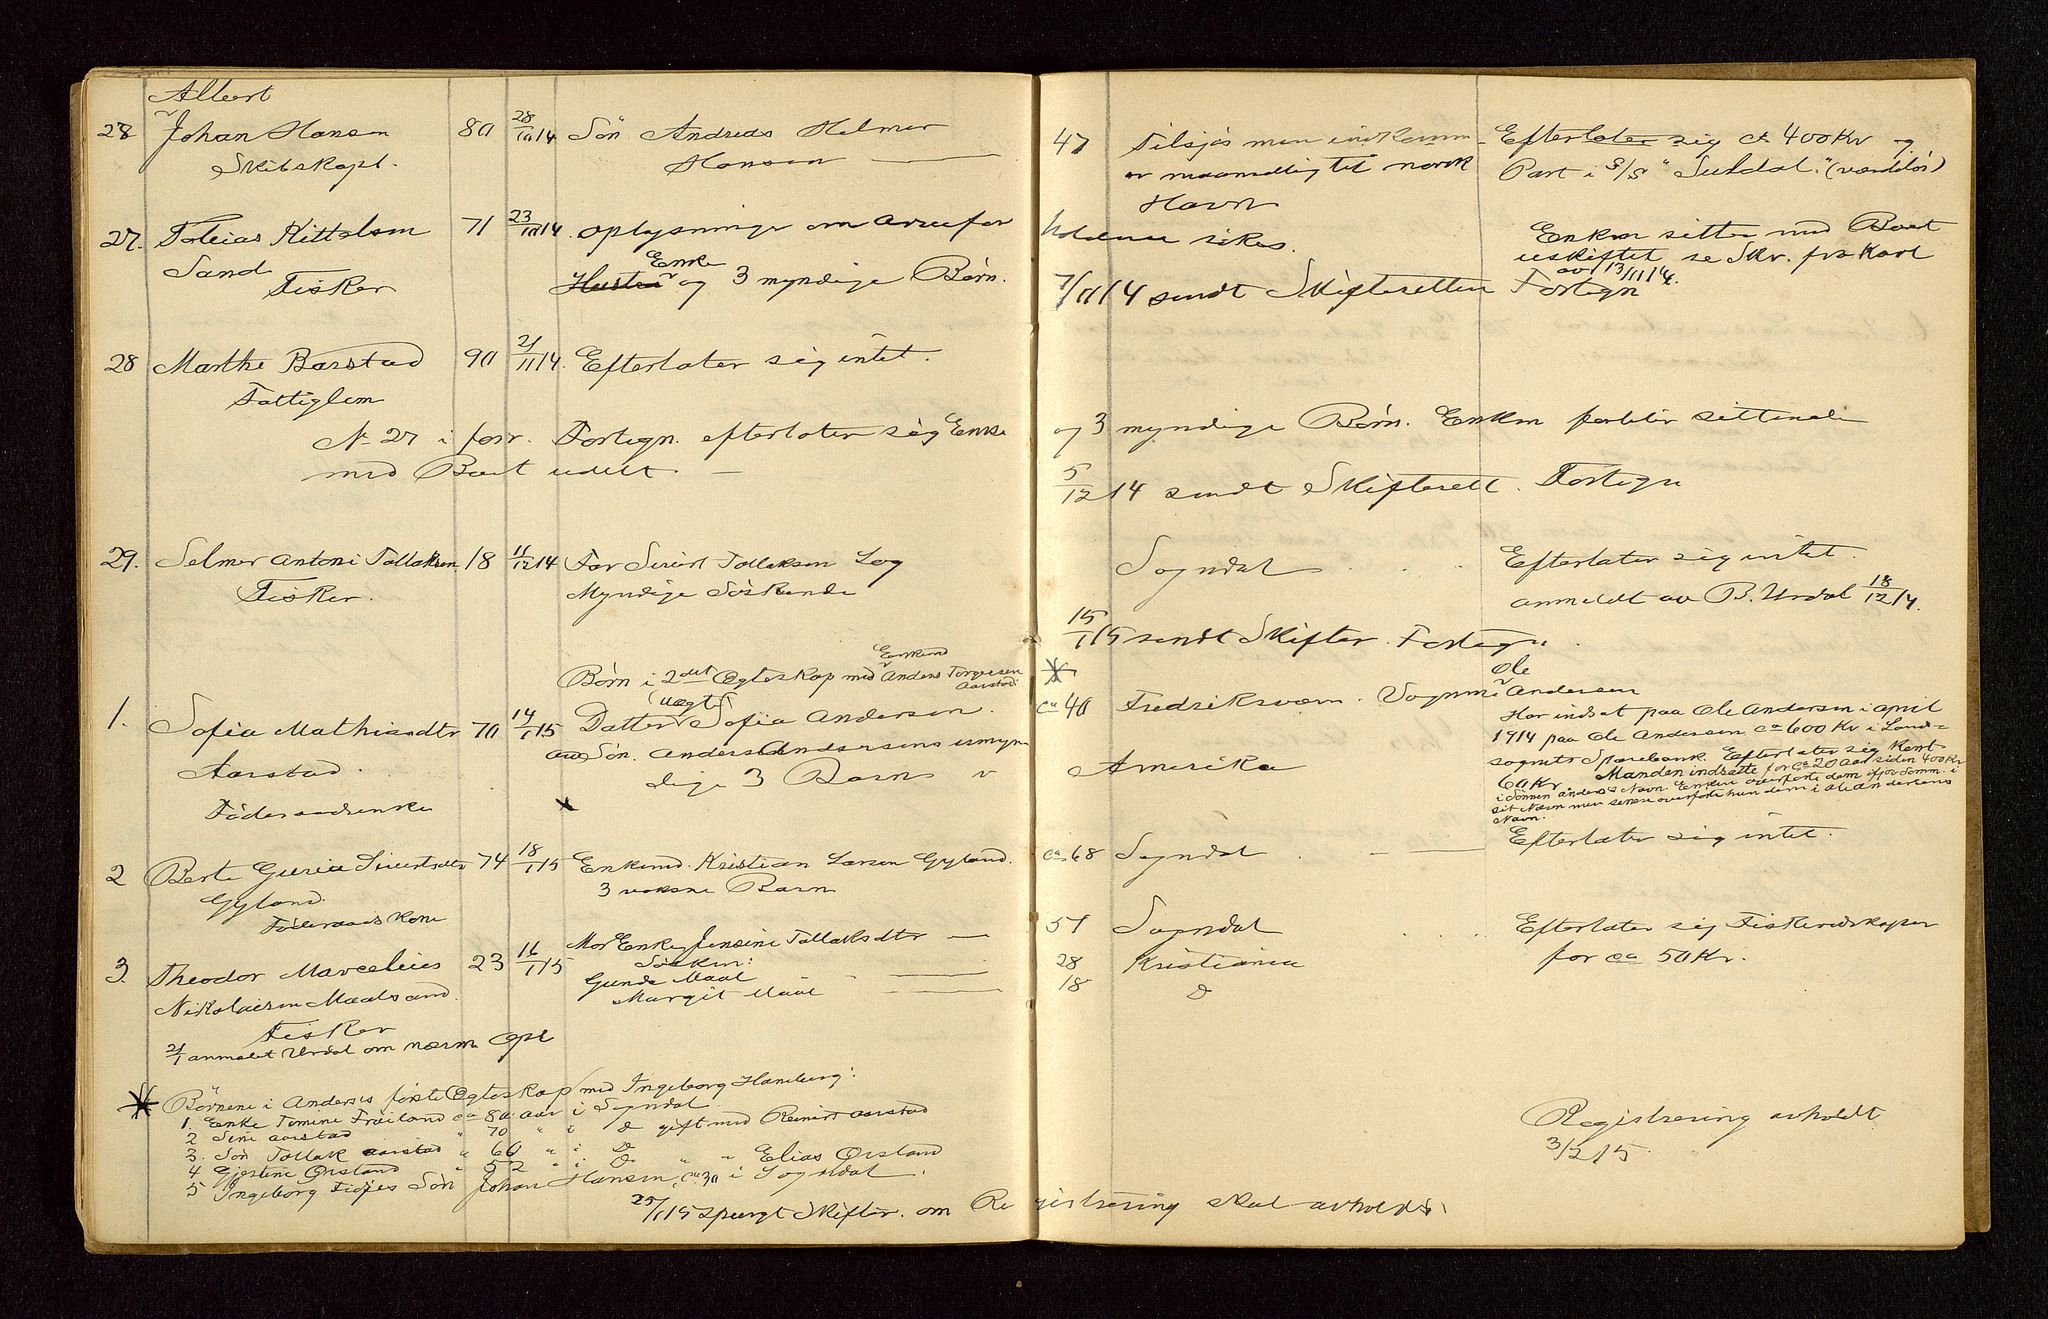 Albert
28 Johan Hansen 80 28/10 14 Søn Andreas Helmer
Skibskapt. Hansen
27. Tobias Kittelsen 71 23/10 14. oplysninger om arvefor
Sand Enke
Fisker Husteu og 3 myndige Børn.
28 Marthe Barstad 90 21/11 14. Efterlater sig intet.
Fattiglem
No 27 i forr. Fortegn. efterlater sig Enke
med Boet udelt
29. Selmer Antoni Tollaksen 18 11/12 14 Far Sivert Tollaksen Log
Fisker. Myndige Søskende
Enkemd
Børn i 2det Egteskap med Anders Torgersen
(uegte) Aarstad:
1. Sofia Mathiasdtr 70 14/1 15 Datter Sofia Andersen.
Søn. Anders Andersens umyn
Aarstad. dige 3 Barn
Føderaadsenke
2 Berte Guria Sivertsdtr 74 18/1 15 Enkemd. Kristian Larsen Gyland.
Gyland. 3 voksne Barn
Føderaadskone
3. Theodor Marcelius 23 16/1 15 Mor Enke Jensine Tollaksdtr
Søsken:
Nikolaisen Maalsand. Gunda Maal
Margit Maal
Fisker
21/1 anmodet Urdal om nærm Opl
Børnene i Anders's første Egteskap med Ingeborg Hamberg:
1. Enke Tomine Frøiland ca 80 aar i Sogndal
2 Sine Aarstad " 70 " i D gift med Reinert Aarstad
3. Søn Tollak Aarstad " 60 " i D
4 Gjertine Ørsland " 52 " i D " " Elias Ørsland
5 Ingeborg Fidjes Søn Johan Hansen, ca 30 i Sogndal.
25/1 15 spurgt Skifter. om Registrering skal avholdes
47 Tilsjøs men indkommer Efterlater sig ca 400 Kr og
maanedlig til norsk Part i S/S "Suldal." (værdiløs)
Havn
holdene søkes. Enken sitter med Boet
uskiftet se Skr. fra Karl
av 13/11 14.
7/11 14 sendt Skifteretten Fortegn
og 3 myndige Børn. Enken forblir sittende
5/12 14 sendt Skifterett. Fortegn
Sogndal Efterlater sig intet.
anmeldt av B. Urdal 18/12 14.
15/1 15 sendt Skifter. Fortegn.
Ole
ca 40 Fredriksværn. Vognm: Andersen
Har indsat paa Ole Andersen i april
1914 paa Ole Andersen ca 600 Kr i Land=
Amerika sogns Sparebank. Efterlater sig Kont
60 Kr Manden indsatte for ca 20 aar siden 400 Kr
i Sønnen Anders's Navn. Enken overførte dem ifjor Somm. i
sit Navn men senere overførte hun dem i Ole Andersens
Navn.
ca 68 Sogndal Efterlater sig intet.
51 Sogndal Efterlater sig Fiskeredskaper
28 Kristiania for ca 50 Kr.
18 D
Registrering avholdt
3/2 15.